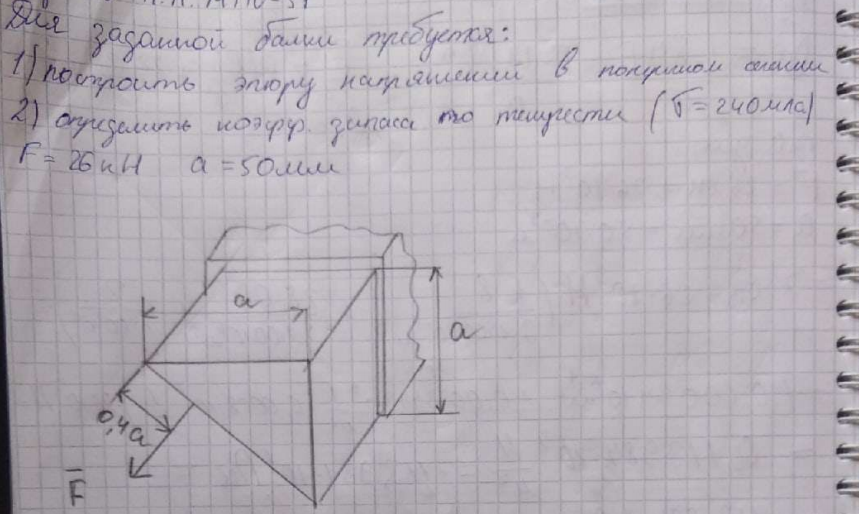 Для заданной балки требуется:
1) построить эпюру напряжений в поперечном сечении
2) определить коэфф. запаса по текучести (σ = 240 мпа)
F = 26 кН a = 50 мм
a
a
0,4a
F